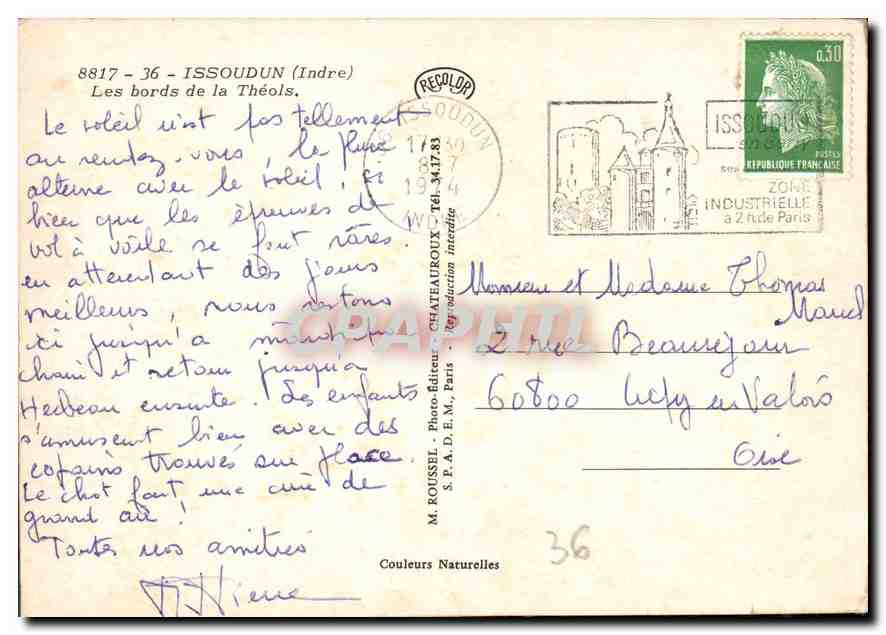 8817 - 36 - ISSOUDUN (Indre)
Les bords de la Théols.
Le soleil n'est pas tellement
au rendez-vous, la pluie
alterne avec le soleil, si
bien que les épreuves de
vol à voile se font rares.
en attendant des jours
meilleurs, nous restons
ici jusqu'à mardi pro
chain et retour jusqu'à
ensuite. Les enfants
s'amusent bien avec des
copains trouvés sur place.
Le chat fait une cure de
grand air !
Toutes nos amitiés
Pierre
RECOLOR
ISSOUDUN
17-30
INDRE
ISSOUDUN
en Berry
ZONE
INDUSTRIELLE
à 2 h de Paris
0,30
POSTES
REPUBLIQUE FRANÇAISE
M. ROUSSEL - Photo-Éditeur - CHATEAUROUX - Tél. 34.17.83
S. P. A. D. E. M., Paris - Reproduction interdite
CPAPHIL
Monsieur et Madame Thomas
Marcel
2 rue Beauséjour
60800 Crépy en Valois
Oise
36
Couleurs Naturelles